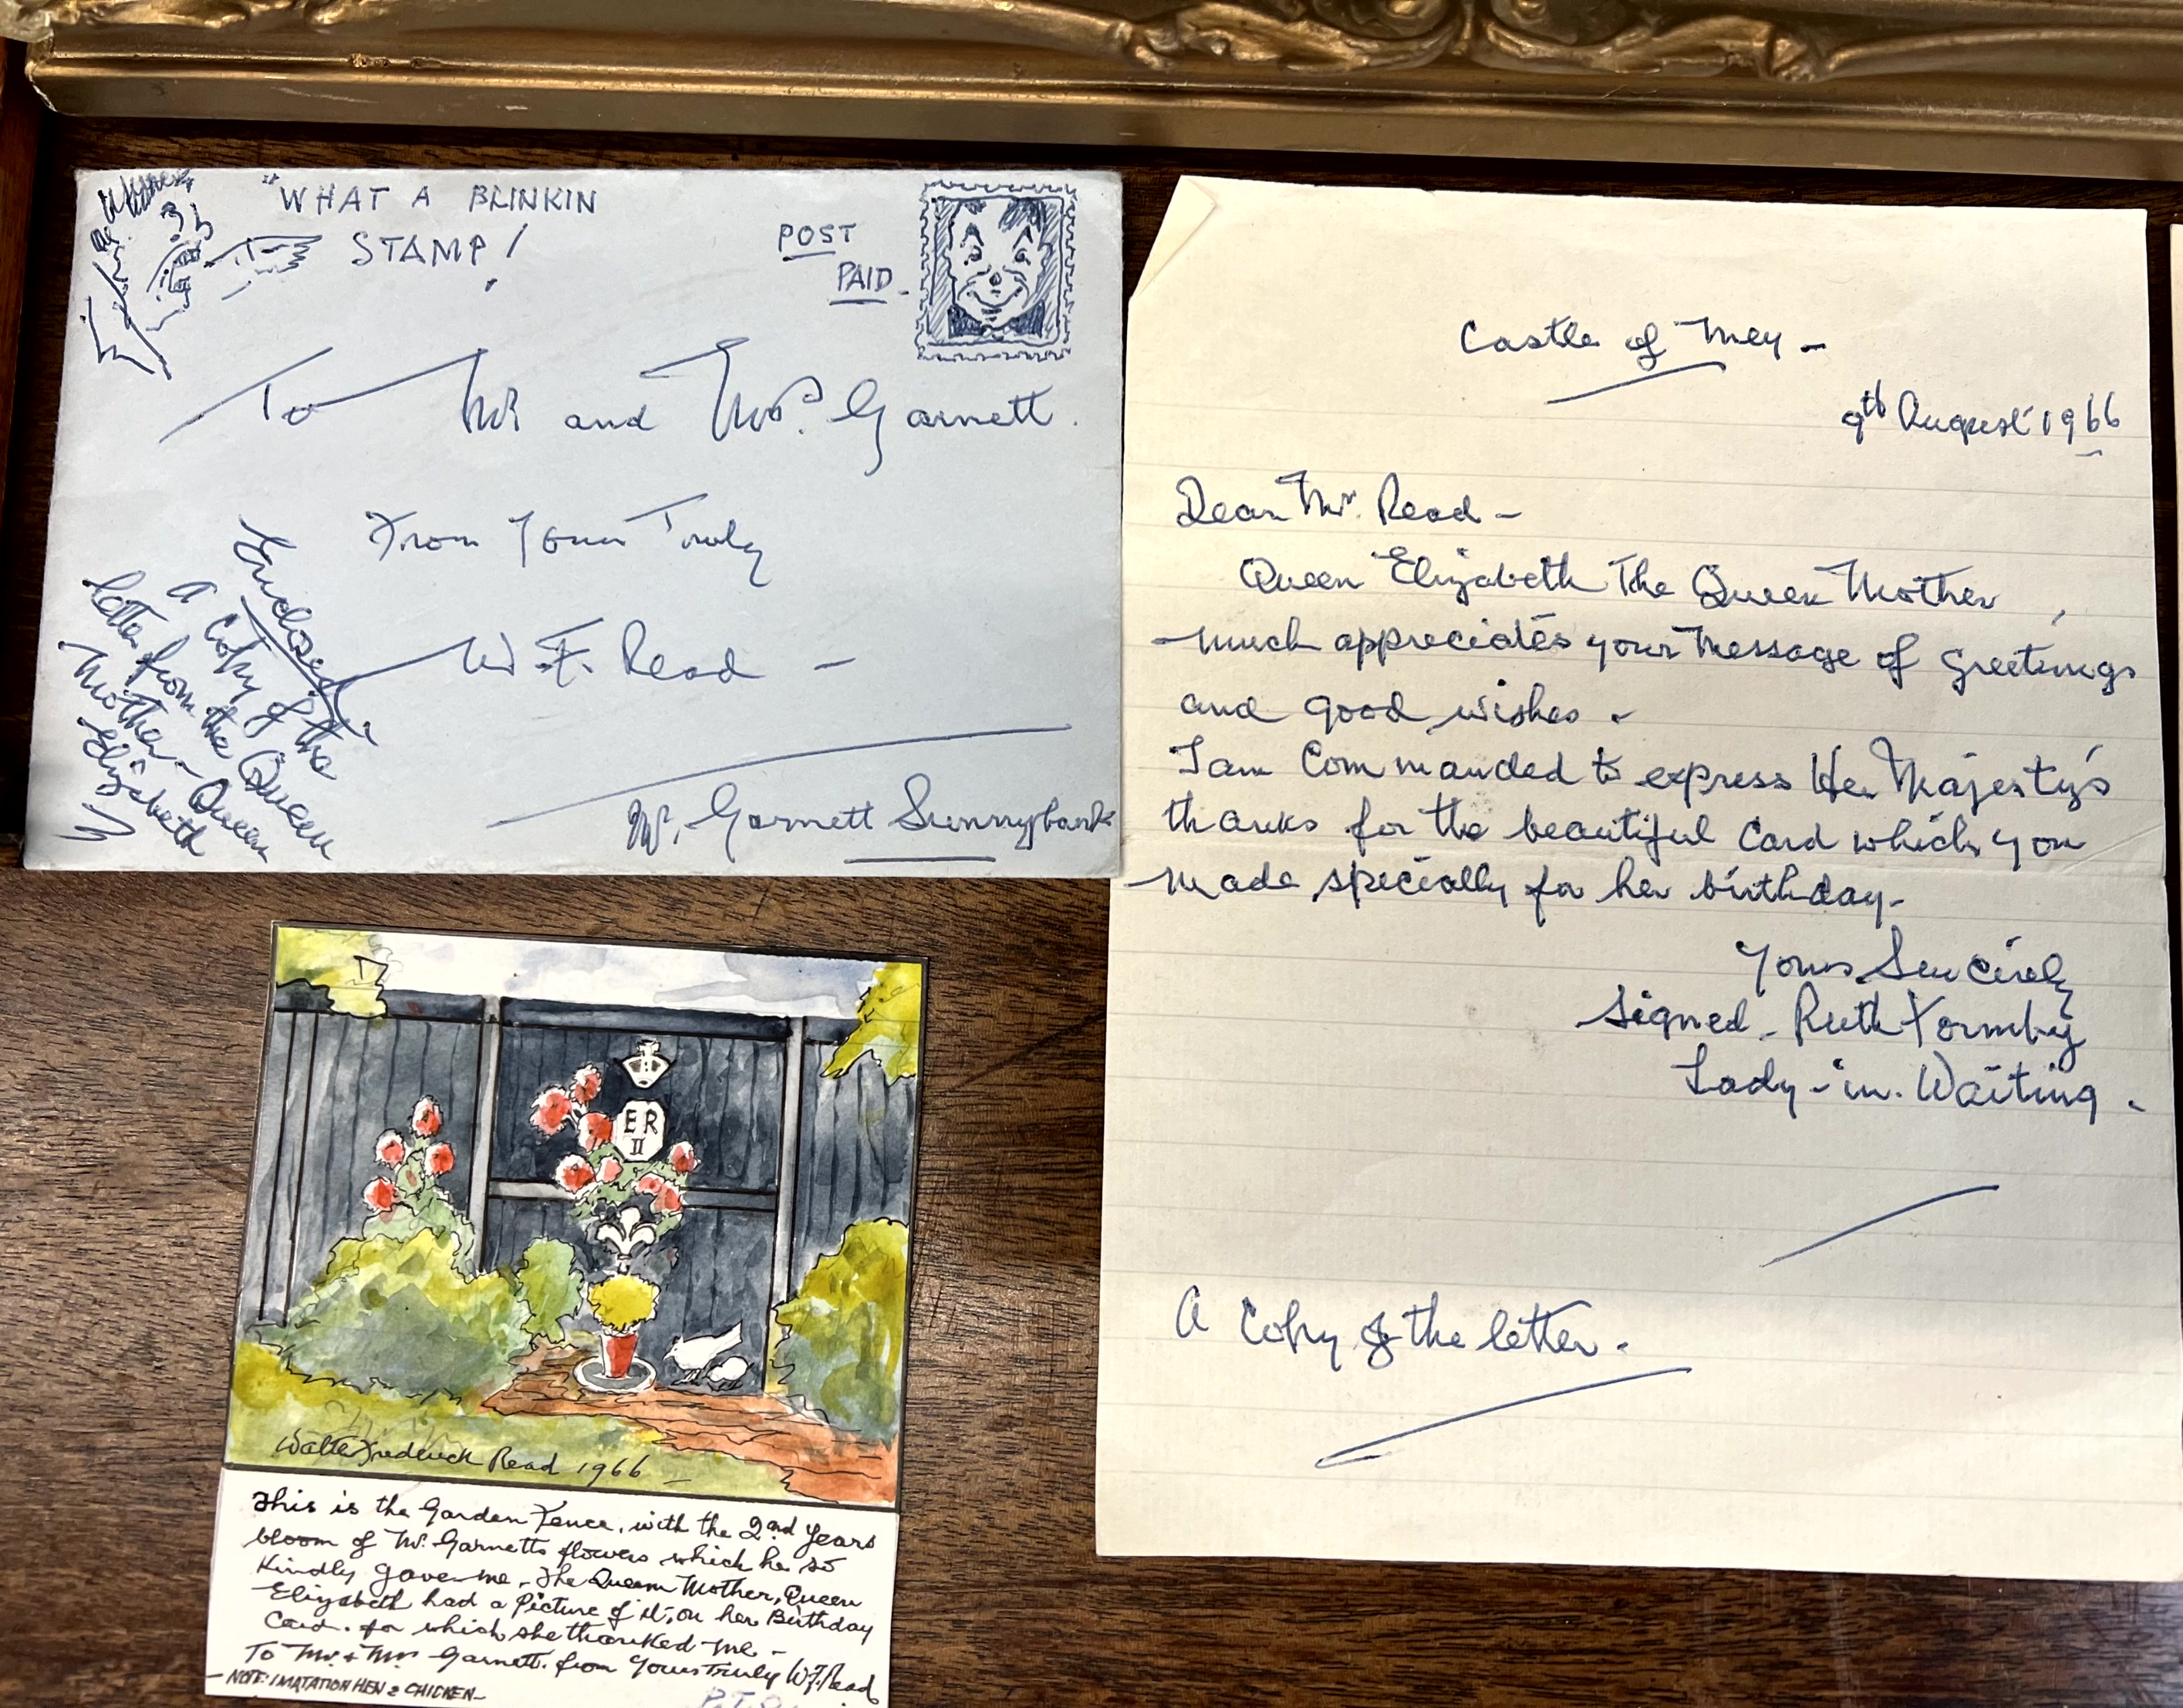 "WHAT A BLINKIN
STAMP!
POST
PAID
To Mr and Mrs. Garnett.
From Yours Truly
W. F. Read -
Enclosed
A Copy of the
letter from the Queen
Mother - Queen
Elizabeth
Mr. Garnett Sunnybank
Castle of Mey -
9th August 1966
Dear Mr. Read -
Queen Elizabeth The Queen Mother,
much appreciates your message of greetings
and good wishes -
I am Commanded to express Her Majesty's
thanks for the beautiful Card which you
made specially for her birthday -
Yours Sincerely
Signed - Ruth Fermoy
Lady-in-Waiting -
A Copy of the letter -
E R
II
Walter Frederick Read 1966 -
This is the Garden Fence, with the 2nd Years
bloom of Mr. Garnetts flowers which he so
Kindly gave me - The Queen Mother, Queen
Elizabeth had a Picture of it, on her Birthday
Card. for which she thanked me -
To Mr. + Mrs Garnett. from Yours Truly W.F. Read
- NOTE: IMATATION HEN & CHICKEN -
P.T.O.